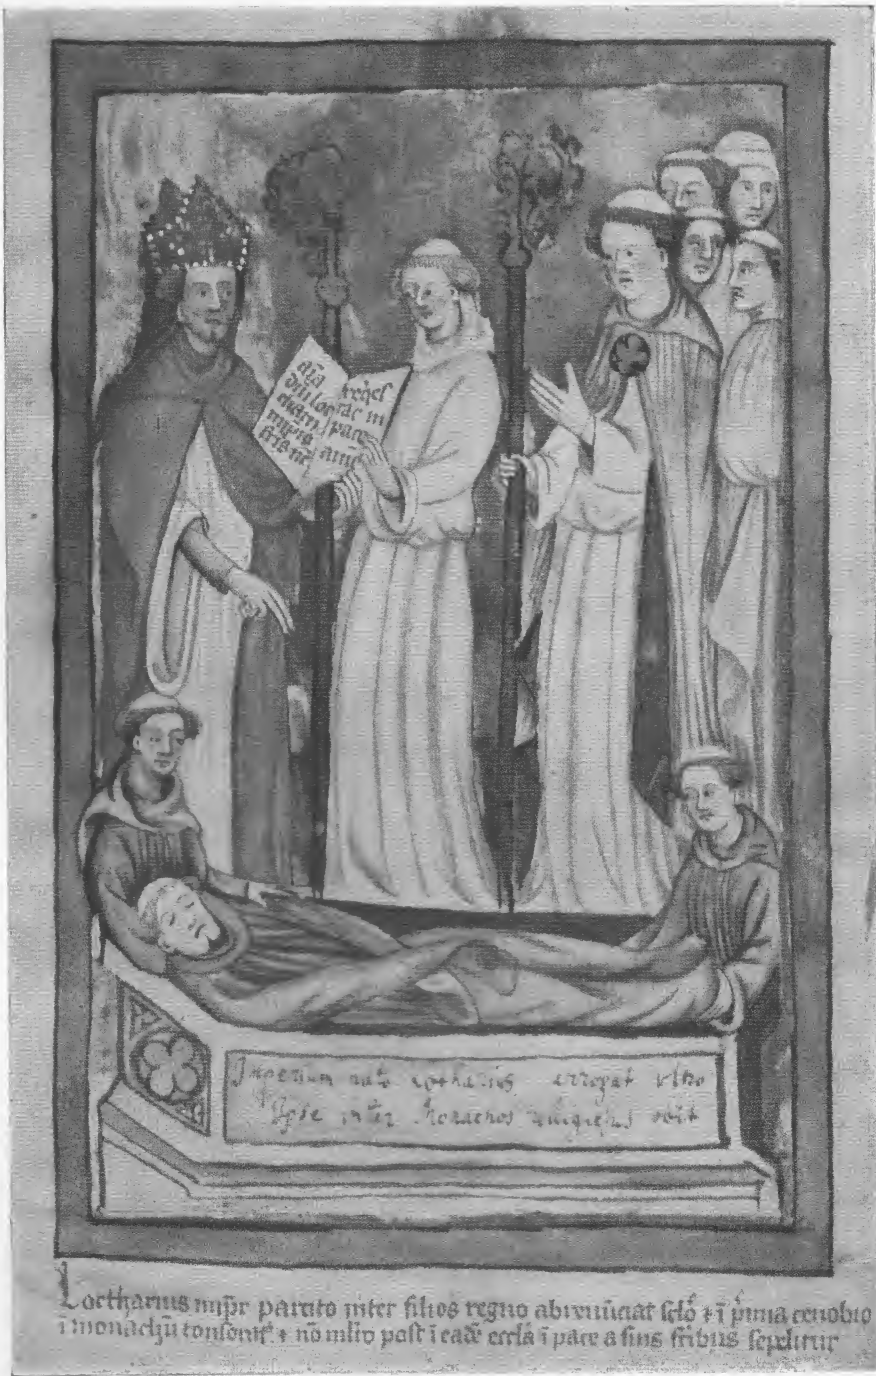 aīa
dn̄i lo
tharii
impīs
fr̄is nr̄i
reqes
cat in
pace
amē
Imperium nato Lotharius arrogat ultro
Ipse inter Monachos religiosus obit
Loctharius imp̄r partito inter filios regno abrenūciat sclō ⁊ ī p̄mia cenobio
ī monachū tonsorat᷒ ⁊ nō mlto post ī eadē eccl̄ā ī pace a suis fr̄ibus sepelitur